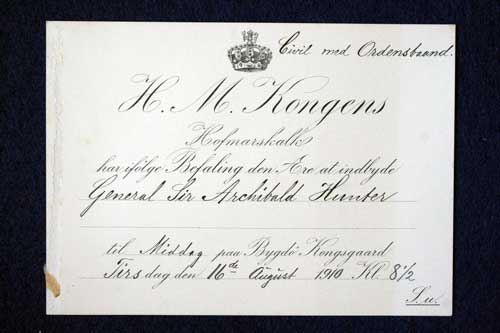 Civil med Ordensbaand.
H. M. Kongens
Hofmarskalk
har ifølge Befaling den Ære at indbyde
General Sir Archibald Hunter
til Middag paa Bygdö Kongsgaard
Tirsdag den 16de August 1910 Kl. 8½
S. u.